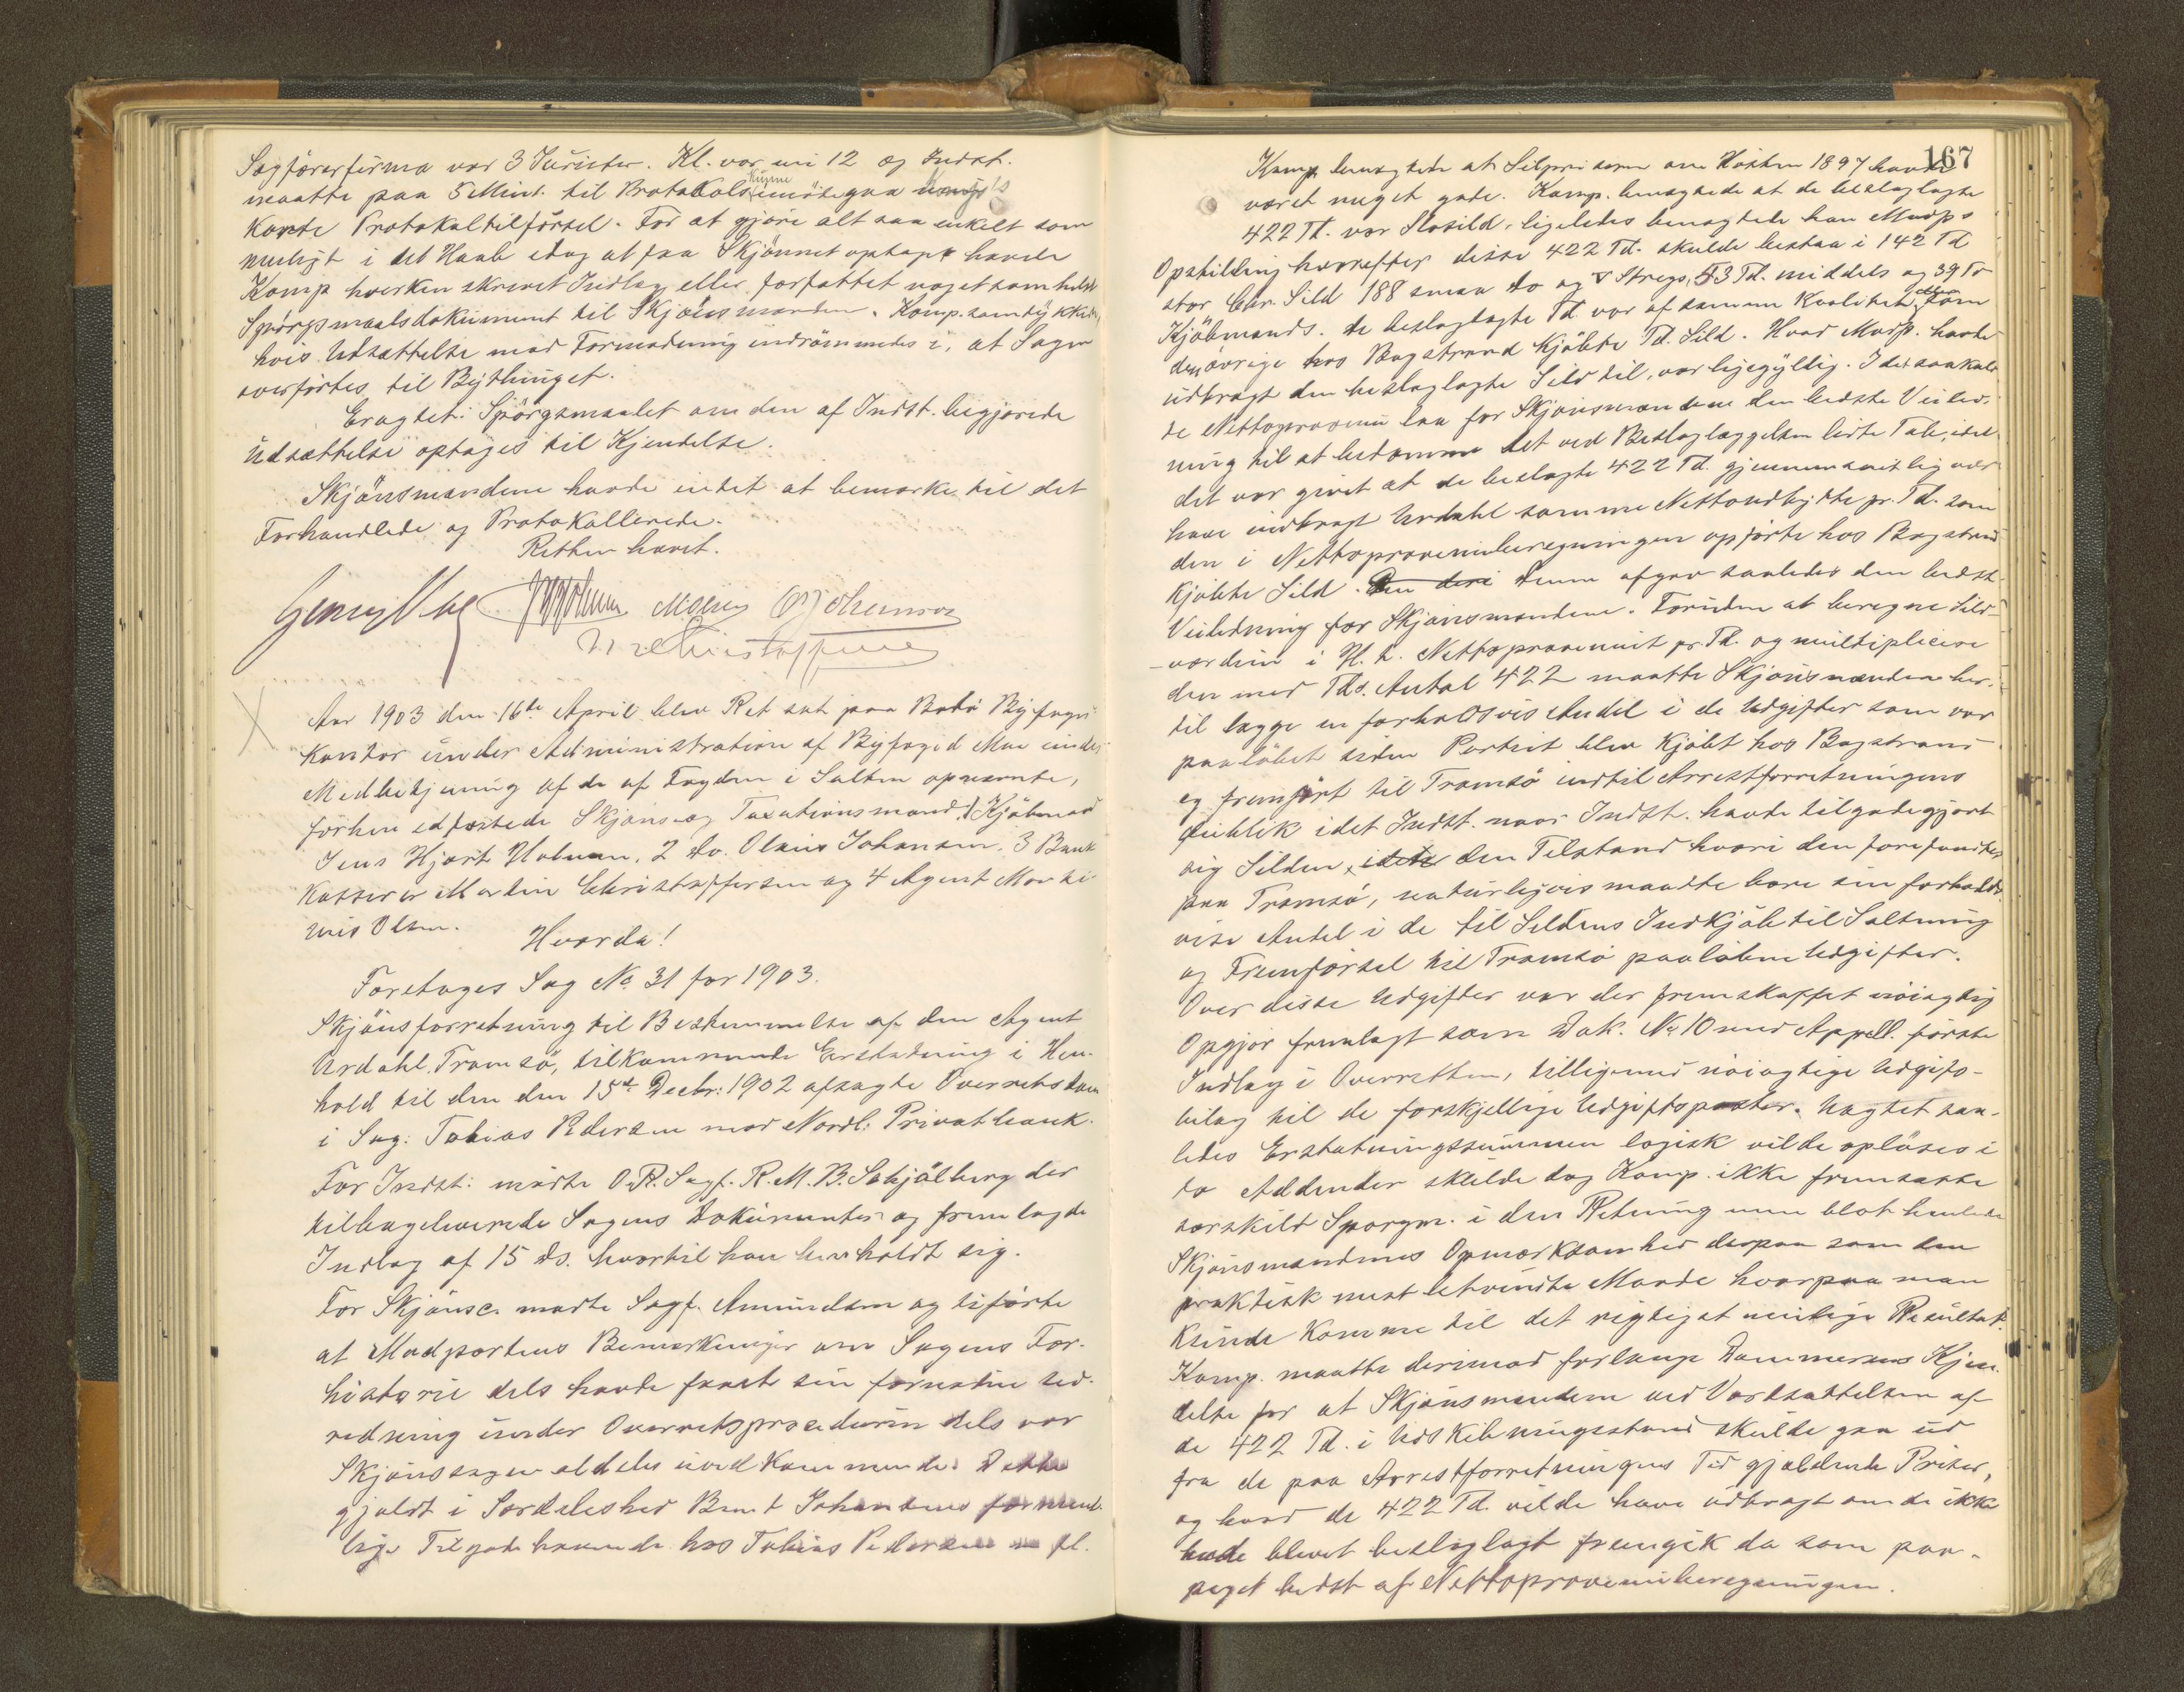 Sagførerfirma var 3 Jurister. Kl. var nu 12 og Indst.
maatte paa 5 Mint. til Protokols kunne imötegaa Komp's
Korte Protokoltilförsel. For at gjöre alt saa enkelt som
muligt i det Haab idag at faa Skjönnet optaget havde
Komp hverken skrevet Indlæg eller forfattet noget somhelst
Spörgsmaalsdokument til Skjönsmænden. Komp. samtykkede,
hvis Udsættelse mod Formodning indrömmedes i, at Sagen
overförtes til Bythinget.
Eragtet: Spörgsmaalet om den af Indst. begjærede
Udsættelse optages til Kjendelse.
Skjönsmændene havde intet at bemærke til det
Forhandlede og Protokollerede.
Retten hævet.
M. Christoffersen O Johansen
Aar 1903 den 16de April blev Ret sat paa Bodö Byfogd
Kontor under Administration af Byfoged Moe under
Medbetjening af de af Fogden i Salten opnævnte,
förhen edfæstede Skjöns og Taxationsmænd, 1 Kjöbmand
Jens Hjort Holmen, 2 do. Olaus Johansen, 3 Bank
Kasserer Martin Christoffersen og 4 Agent Marti-
nus Olsen.
Hvorda!
Foretages Sag No 31 for 1903.
Skjönsforretning til Bestemmelse af den Agent
Urdahl, Tromsö, tilkommende Erstatning i Hen-
hold til den den 15de Decbr: 1902 afsagte Overretsdom
i Sag: Tobias Pedersen mod Nordl: Privatbank.
For Indst: mödte O.R. Sagf. R. M. B. Schjölberg der
tilbageleverede Sagens Dokumenter og fremlagde
Indlæg af 15 ds. hvortil han henholdt sig.
For Skjönsc. mödte Sagf. Amundsen og tilförte
at Modpartens Bemærkninger om Sagens For-
historie dels havde faaet sin fornødne Ud-
redning under Overretsproceduren dels var
Skjönssagen aldeles uvedkommende. Dette
gjældt i Særdeleshed Bernt Johansens forment-
lige Tilgodehavende hos Tobias Pedersen m fl.
167
Komp benegtede at Sildprisene om Hösten 1897 havde
været meget gode. Komp. benegtede at de beslaglagte
422 Td. var Slosild, ligeledes benegtede han Modp's
Opstilling hvorefter disse 422 Td. skulde bestaa i 142 Td
stor Chr. Sild 188 smaa do og Stregs, 53 Td. middels og 39 Td
Kjöbmands. de beslaglagte Td var af samme Kvalitet som
den övrige hos Bagstrand Kjöbte Td. Sild. Hvad Modp. havde
udbragt den beslaglagte Sild til, var ligegyldig. I det saakald-
te Nettoprovenu laa for Skjönsmændene den bedste Veiled-
ning til at bedömme det ved Beslaglæggelsen lidte Tab, idet
det var givet at de beslagte 422 Td. gjennemsnitlig vær
have indbragt Urdahl samme Nettoudbytte pr. Td. som
den i Nettoprovenuberegningen opförte hos Bagstrand
Kjöbte Sild. Denne afgav saaledes den bedste
Veiledning for Skjönsmændene. Foruden at beregne Sild-
værdien i H. t. Nettoprovenuet pr. Td. og multiplicere
den med Tds. Antal 422 maatte Skjönsmændene her-
til lægge en forholdsvis Andel i de Udgifter som var
paalöbet siden Partiet blev Kjöbt hos Bagstrand
og fremfört til Tromsö indtil Arrestforretningens
Öieblik idet Indst. naar Indst. havde tilgodegjort
sig Silden i den Tilstand hvori den forefandtes
paa Tromsö, naturligvis maatte bære sin forholds-
vise Andel i de til Sildens Indkjöb til Saltning
og Fremförsel til Tromsö paalöbne Udgifter.
Over disse Udgifter var der fremskaffet nöiagtig
Opgjör fremlagt som Dok. No 10 med Appell. förste
Indlæg i Overretten, tilligemed nöiagtige Udgifts-
bilag til de forskjellige Udgiftsposter. Uagtet saa-
ledes Erstatningssummen logisk vilde oplöses i
to Addender skulde dog Komp. ikke fremsætte
særskilt Spörgsm. i den Retning men blot henlede
Skjönsmændenes Opmærksomhed derpaa som den
praktisk mest letvindte Maade hvorpaa man
Kunde Komme til det rigtigst mulige Resultat.
Komp. maatte derimod forlange Dommerens Kjen-
delse for at Skjönsmændene ved Værdsættelsen af
de 422 Td. i Udskibningsstand skulde gaa ud
fra de paa Arrestforretningens Tid gjældende Priser,
og hvad de 422 Td. vilde have udbragt om de ikke
hade blevet beslaglagt fremgik da som paa-
peget bedst af Nettoprovenuberegningen.